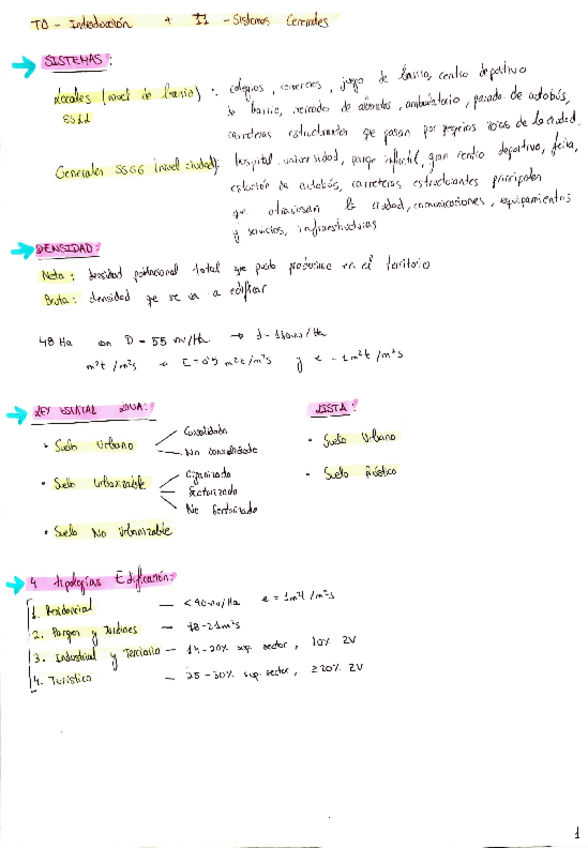 T0 - Introducción + T1 - Sistemas Generales
SISTEMAS:
Locales (nivel de barrio): colegios, comercios, juego de barrio, centro deportivo
ESLL de barrio, mercados de abastos, ambulatorio, parada de autobús,
carreteras estructurantes que pasan por pequeñas zonas de la ciudad.
Generales SSGG (nivel ciudad): hospital, universidad, parque infantil, gran centro deportivo, feria,
estación de autobús, carreteras estructurantes principales
que atraviesan la ciudad, comunicaciones, equipamientos
y servicios, infraestructuras
DENSIDAD:
Neta: densidad poblacional total que puede producirse en el territorio
Bruta: densidad que se va a edificar
48 Ha con D = 55 viv/Ha → d -
m²t/m²s E = 0'5 m²t/m²s y - 1m²t/m²s
LEY ESTATAL
LISTA:
• Suelo Urbano
Consolidado
No consolidado
• Suelo Urbanizable
Sectorizado
No Sectorizado
• Suelo No Urbanizable
• Suelo Urbano
• Suelo Rústico
4 tipologías Edificación:
1. Residencial — e = 1m²t/m²s
2. Parques y Jardines — 18-21m²s
3. Industrial y Terciario — 14-20% sup. sector, 10% ZV
4. Turístico — 25-30% sup. sector, ≥20% ZV
1